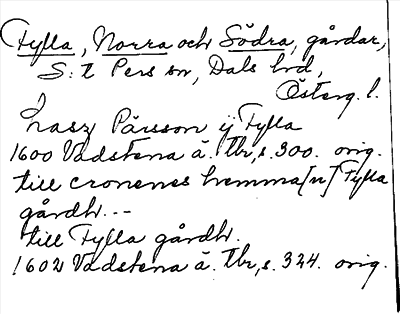 Fylla, Norra och Södra, gårdar,
S:t Pers sn, Dals hd,
Österg. l.
Lasz Pärsson ÿ Fylla
1600 Vadstena ä. tbr, s. 300. orig.
till cronenes hemma[n] Fylla
gårdh.--
till Fylla gårdh.
1602 Vadstena ä. tbr, s. 324. orig.